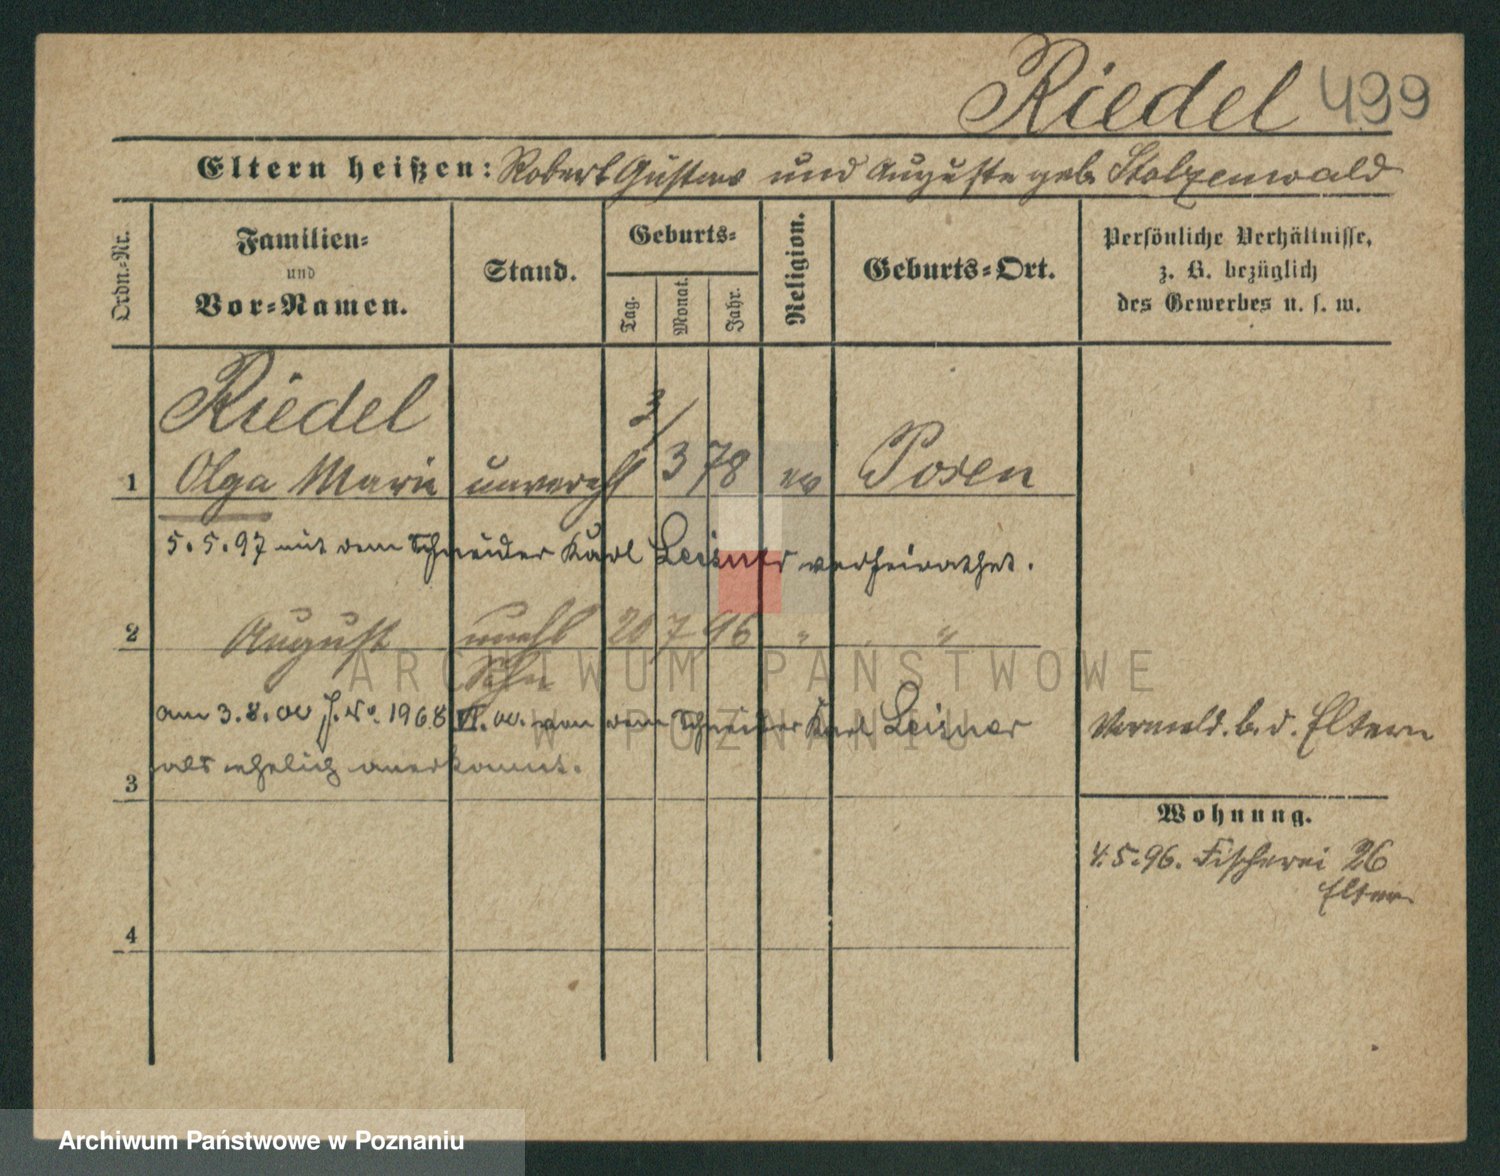 Riedel 499
Eltern heißen: Robert Gustav und Auguste geb. Stolzenwald
Ordn.-Nr.
Familien-
und
Vor-Namen.
Stand.
Geburts-
Tag.
Monat.
Jahr.
Religion.
Geburts-Ort.
Persönliche Verhältnisse,
z. B. bezüglich
des Gewerbes u. s. w.
Riedel
1 Olga Marie unverehl 3/ 3 78 ev Posen
5.5.97 mit dem Schneider Karl Leisner verheirathet.
2 August unehl 20 7 96 " "
Sohn
am 3.8.00 J. No. 1968 VI.00. von dem Schneider Karl Leisner
als ehelich anerkannt.
3
4
Vermeld. b. d. Eltern
Wohnung.
4.5.96. Fischerei 26
Eltern
ARCHIWUM PAŃSTWOWE
W POZNANIU
Archiwum Państwowe w Poznaniu